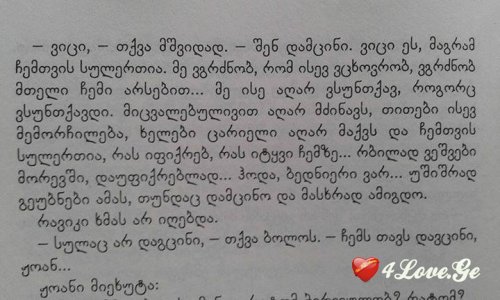 – ვიცი, – თქვა მშვიდად. – შენ დამცინი. ვიცი ეს, მაგრამ
ჩემთვის სულერთია. მე ვგრძნობ, რომ ისევ ვცხოვრობ, ვგრძნობ
მთელი ჩემი არსებით... მე ისე აღარ ვსუნთქავ, როგორც
ვსუნთქავდი. მიცვალებულივით აღარ მძინავს, თითები ისევ
მემორჩილება, ხელები ცარიელი აღარ მაქვს და ჩემთვის
სულერთია, რას იფიქრებ, რას იტყვი ჩემზე... რბილად ვეშვები
მორევში, დაუფიქრებლად... ჰოდა, ბედნიერი ვარ... უშიშრად
გეუბნები ამას, თუნდაც დამცინო და მასხრად ამიგდო.
რავიკი ხმას არ იღებდა.
– სულაც არ დაგცინი, – თქვა ბოლოს. – ჩემს თავს დავცინი,
ჟოან...
ჟოანი მიეხუტა:
4Love.Ge